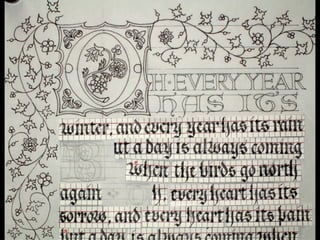 OH·EVERY YEAR
HAS ITS
winter, and every year has its rain
but a day is always coming
when the birds go north
again h, every heart has its
sorrow, and every heart has its pain
but a day is always coming when